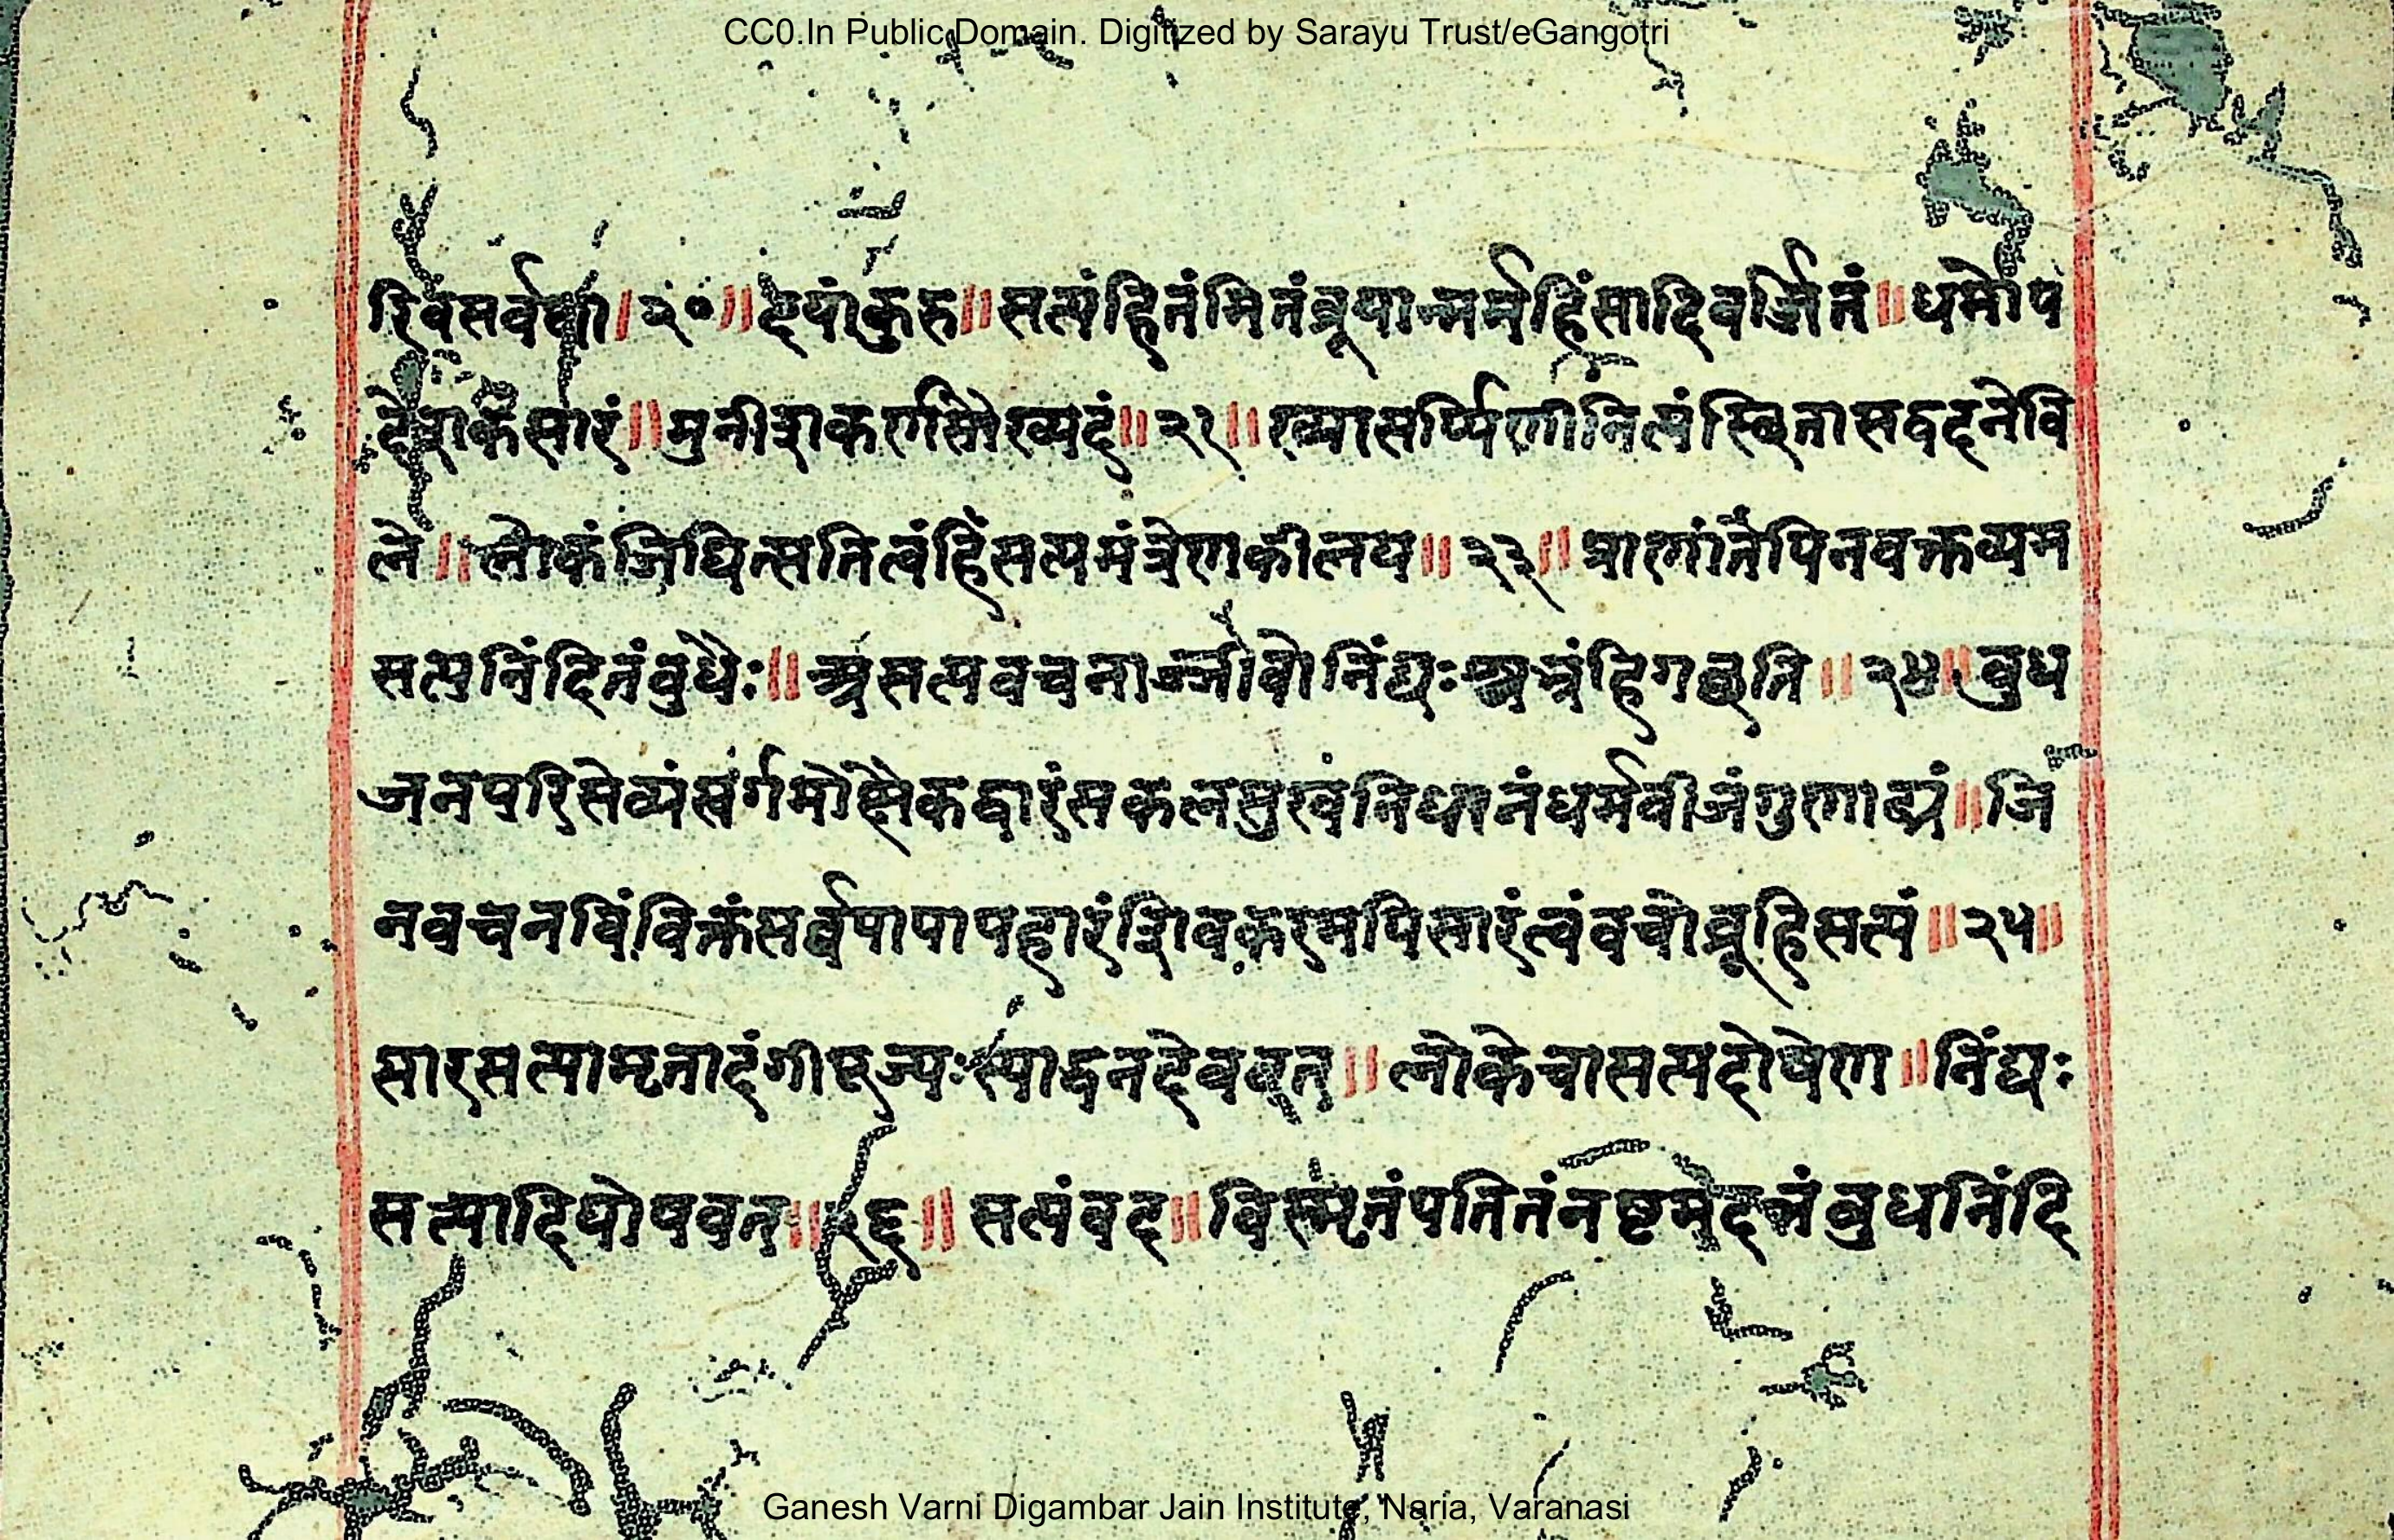 CC0.In Public Domain. Digitized by Sarayu Trust/eGangotri
रिवसर्वथा।२०॥दयांकुरु॥सत्यंहितंमितंब्रूयान्मर्महिंसादिवर्जितं॥धर्मोप
देशकंसारं॥मुनींद्राकर्णसौख्यदं॥२१॥ख्यासर्प्पिणीनित्यंस्थितासद्वदनेवि
ले॥लोकंजिघित्सतित्वंहिंसत्यमंत्रेणकीलय॥२३॥प्राणांतेपिनवक्तव्यम
सत्यनिंदितंबुधैः॥असत्यवचनाज्जीवोनिंद्यःश्वभ्रंहिगछति॥२४॥बुध
जनपरिसेव्यंस्वर्गमोक्षैकद्वारंसकलसुखंनिधानंधर्मबीजंगुणाढ्यं॥जि
नवचनविंविक्तंसर्वपापापहारंशिवकरमपिसारंत्वंवचोब्रूहिसत्यं॥२५॥
सारसत्यामृतादंगीपूज्यःस्याद्धनदेववत्॥लोकेचासत्यदोषेण॥निंद्यः
सत्यादिघोषवत्॥२६॥सत्यंवद॥विस्मृतंपतितंनष्टमदत्तंबुधनिंदि
Ganesh Varni Digambar Jain Institute, Naria, Varanasi